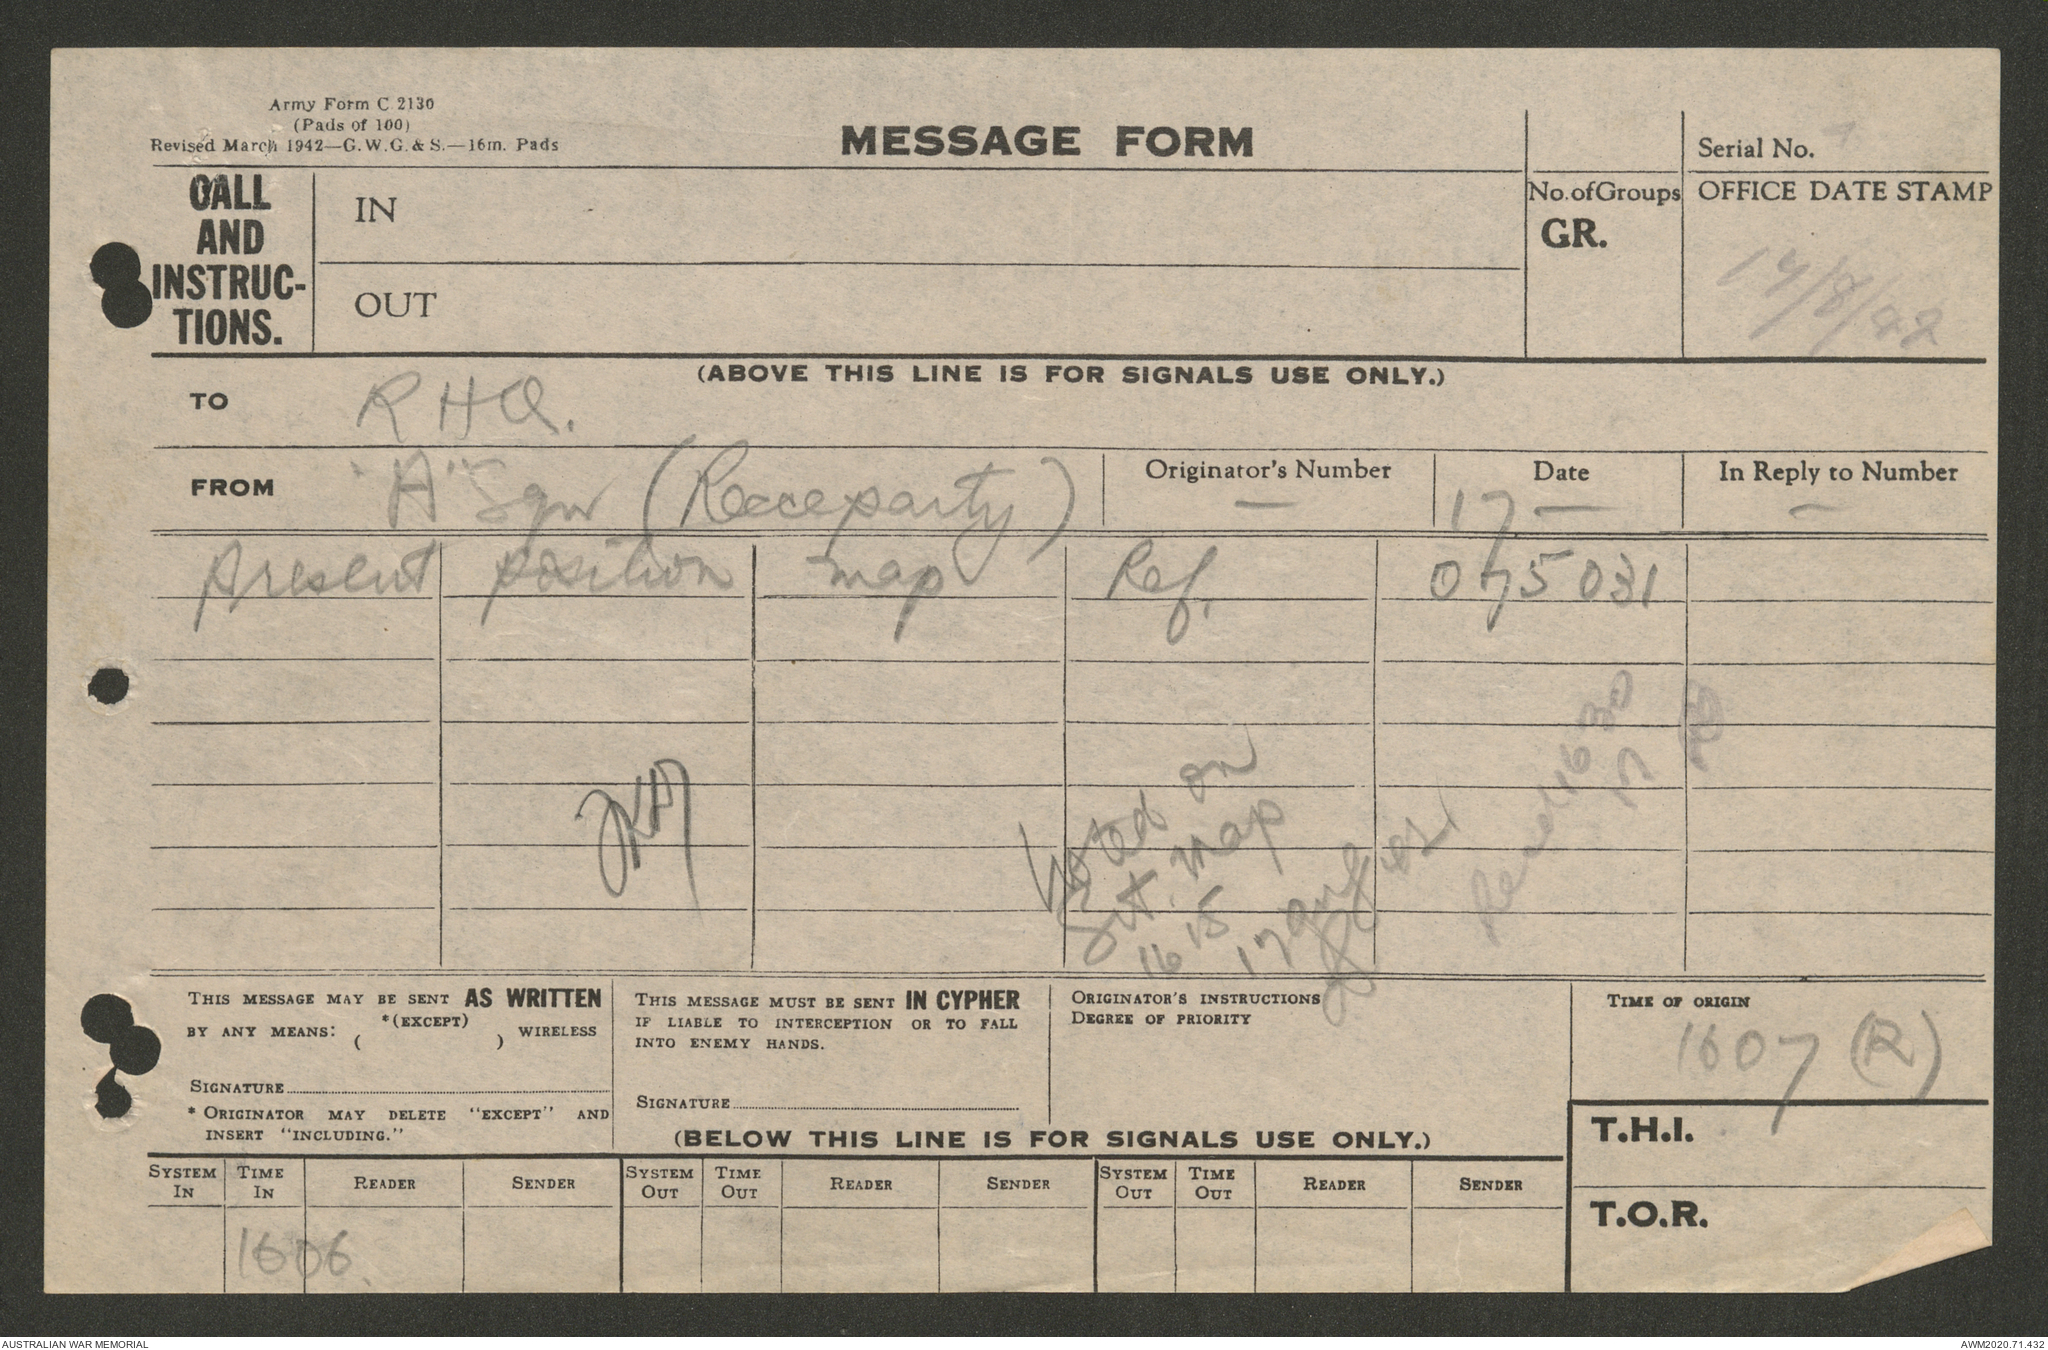 Army Form C 2130
(Pads of 100)
Revised March 1942—G.W.G. & S.—16m. Pads
MESSAGE FORM
Serial No.
CALL AND INSTRUC-TIONS.
IN
OUT
No. of Groups
GR.
OFFICE DATE STAMP
17/8/42
(ABOVE THIS LINE IS FOR SIGNALS USE ONLY.)
TO R H Q.
FROM "A" Sqn (Recce party)
Originator's Number —
Date 17 —
In Reply to Number —
Present position map Ref. 075031
Noted on
Sit. map
1615
17 Aug
Recd 1630
TIME OF ORIGIN
1607 (R)
THIS MESSAGE MAY BE SENT AS WRITTEN
BY ANY MEANS: ( *(EXCEPT) ) WIRELESS
SIGNATURE
* ORIGINATOR MAY DELETE "EXCEPT" AND
INSERT "INCLUDING."
THIS MESSAGE MUST BE SENT IN CYPHER
IF LIABLE TO INTERCEPTION OR TO FALL
INTO ENEMY HANDS.
SIGNATURE
ORIGINATOR'S INSTRUCTIONS
DEGREE OF PRIORITY
(BELOW THIS LINE IS FOR SIGNALS USE ONLY.)
T.H.I.
T.O.R.
SYSTEM IN TIME IN READER SENDER SYSTEM OUT TIME OUT READER SENDER SYSTEM OUT TIME OUT READER SENDER
1606
AUSTRALIAN WAR MEMORIAL
AWM2020.71.432